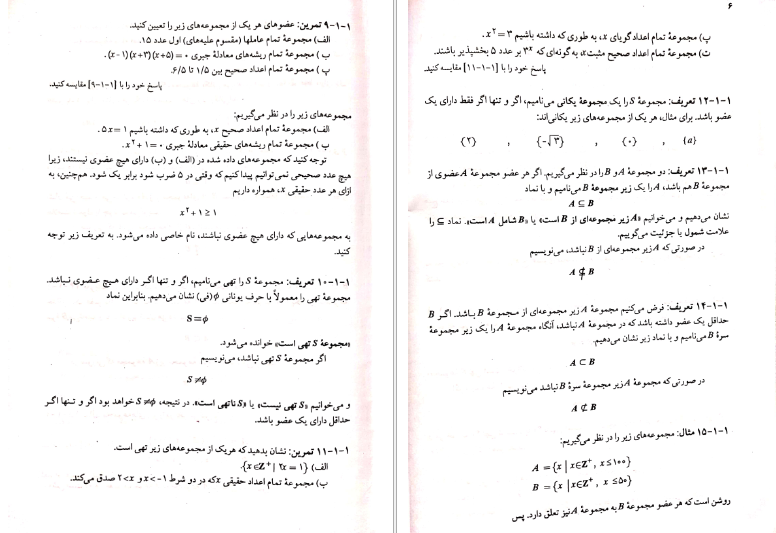 ۱-۱-۹ تمرین: عضوهای هر یک از مجموعه‌های زیر را تعیین کنید.
الف) مجموعهٔ تمام عاملها (مقسوم علیه‌های) اول عدد ۱۵.
ب) مجموعهٔ تمام ریشه‌های معادلهٔ جبری (x-۱)(x+۳)(x+۵)=۰.
پ) مجموعهٔ تمام اعداد صحیح بین ۱/۵ تا ۶/۵.
پاسخ خود را با [۱-۱-۹] مقایسه کنید.
مجموعه‌های زیر را در نظر می‌گیریم:
الف) مجموعهٔ تمام اعداد صحیح x، به طوری که داشته باشیم ۵x=۱
ب) مجموعهٔ تمام ریشه‌های حقیقی معادلهٔ جبری x²+۱=۰.
توجه کنید که مجموعه‌های داده شده در (الف) و (ب) دارای هیچ عضوی نیستند، زیرا
هیچ عدد صحیحی نمی‌توانیم پیدا کنیم که وقتی در ۵ ضرب شود برابر یک شود. همچنین، به
ازای هر عدد حقیقی x، همواره داریم
x²+۱≥۱
به مجموعه‌هایی که دارای هیچ عضوی نباشند، نام خاصی داده می‌شود. به تعریف زیر توجه
کنید.
۱-۱-۱۰ تعریف: مجموعهٔ S را تهی می‌نامیم، اگر و تنها اگر دارای هیچ عضوی نباشد.
مجموعهٔ تهی را معمولاً با حرف یونانی ϕ(فی) نشان می‌دهیم. بنابراین نماد
S=ϕ
«مجموعهٔ S تهی است» خوانده می‌شود.
اگر مجموعهٔ S تهی نباشد، می‌نویسیم
S≠ϕ
و می‌خوانیم «S تهی نیست» یا «S ناتهی است». در نتیجه، S≠ϕ خواهد بود اگر و تنها اگر
حداقل دارای یک عضو باشد.
۱-۱-۱۱ تمرین: نشان بدهید که هریک از مجموعه‌های زیر تهی است.
الف) {x∈Z⁺| ۲x = ۱}.
ب) مجموعهٔ تمام اعداد حقیقی x که در دو شرط x<-۱ و ۲<x صدق می‌کند.
۶
پ) مجموعهٔ تمام اعداد گویای x، به طوری که داشته باشیم x²=۳.
ت) مجموعهٔ تمام اعداد صحیح مثبت x، به گونه‌ای که ۳ˣ بر عدد ۵ بخشپذیر باشند.
پاسخ خود را با [۱-۱-۱۱] مقایسه کنید.
۱-۱-۱۲ تعریف: مجموعهٔ S را یک مجموعهٔ یکانی می‌نامیم، اگر و تنها اگر فقط دارای یک
عضو باشد. برای مثال، هر یک از مجموعه‌های زیر یکانی‌اند:
{a} , {۰} , {-√۳} , {۲}
۱-۱-۱۳ تعریف: دو مجموعهٔ A و B را در نظر می‌گیریم. اگر هر عضو مجموعهٔ A عضوی از
مجموعهٔ B هم باشد، A را یک زیر مجموعهٔ B می‌نامیم و با نماد
A ⊆ B
نشان می‌دهیم و می‌خوانیم «A زیر مجموعه‌ای از B است» یا «B شامل A است». نماد ⊆ را
علامت شمول یا جزئیت می‌گوییم.
در صورتی که A زیر مجموعه‌ای از B نباشد، می‌نویسیم
A ⊈ B
۱-۱-۱۴ تعریف: فرض می‌کنیم مجموعهٔ A زیر مجموعه‌ای از مجموعهٔ B باشد. اگر B
حداقل یک عضو داشته باشد که در مجموعهٔ A نباشد، آنگاه مجموعهٔ A را یک زیر مجموعهٔ
سرهٔ B می‌نامیم و با نماد زیر نشان می‌دهیم.
A ⊂ B
در صورتی که مجموعهٔ A زیر مجموعهٔ سرهٔ B نباشد می‌نویسیم
A ⊄ B
۱-۱-۱۵ مثال: مجموعه‌های زیر را در نظر می‌گیریم:
A = {x | x∈Z⁺ , x≤۱۰۰}
B = {x | x∈Z⁺ , x ≤۵۰}
روشن است که هر عضو مجموعهٔ B به مجموعهٔ A نیز تعلق دارد. پس